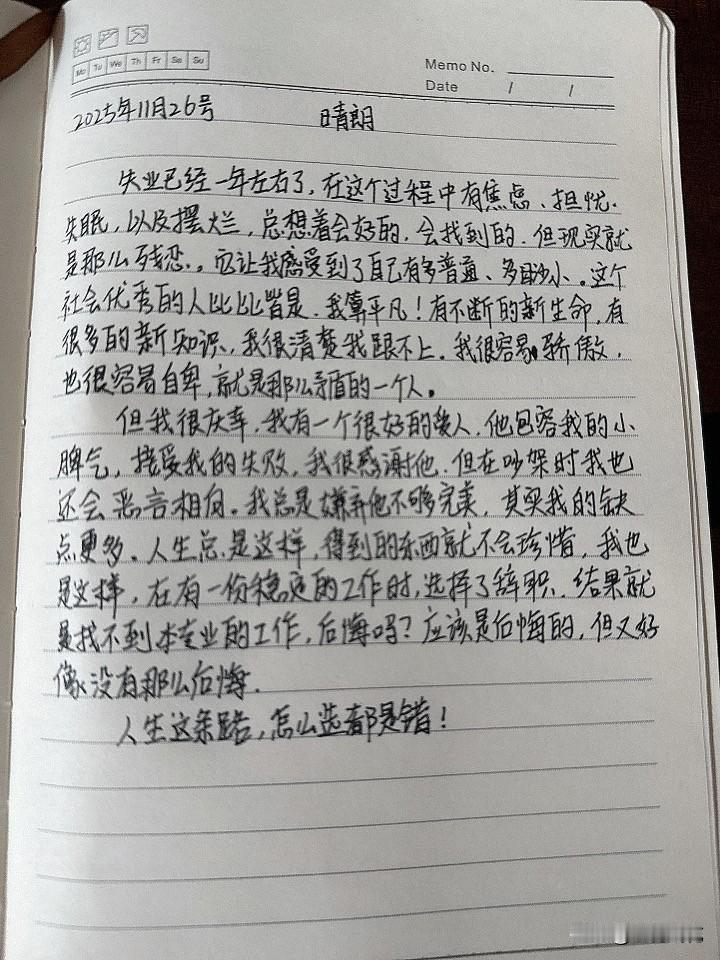 Mo Tu We Th Fr Sa Su
Memo No.
Date / /
2025年11月26号 晴朗
失业已经一年左右了，在这个过程中有焦虑、担忧、
失眠，以及摆烂，总想着会好的，会找到的，但现实就
是那么残忍。它让我感受到了自己有多普通、多渺小。这个
社会优秀的人比比皆是，我算平凡！有不断的新生命，有
很多的新知识，我很清楚我跟不上。我很容易骄傲，
也很容易自卑，就是那么矛盾的一个人。
但我很庆幸，我有一个很好的爱人，他包容我的小
脾气，接受我的失败，我很感谢他，但在吵架时我也
还会恶言相向。我总是嫌弃他不够完美，其实我的缺
点更多。人生总是这样，得到的东西就不会珍惜，我也
是这样，在有一份稳定的工作时，选择了辞职，结果就
是找不到本专业的工作，后悔吗？应该是后悔的，但又好
像没有那么后悔。
人生这条路，怎么选都是错！